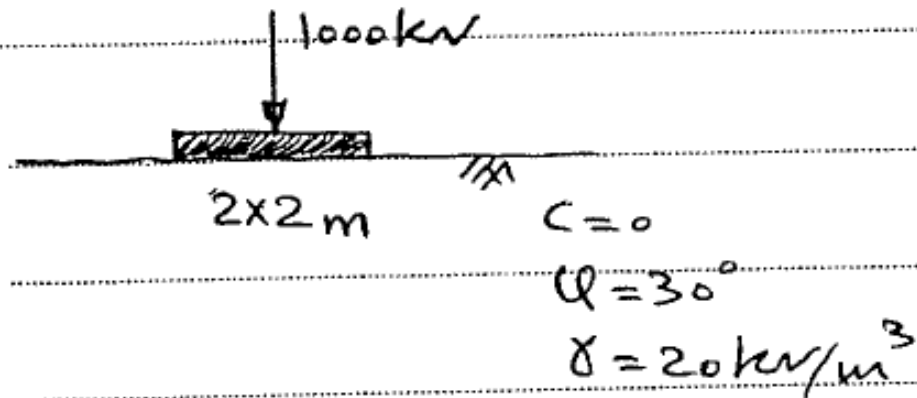 1000kN
2x2 m
C = 0
φ = 30°
γ = 20 kN/m³